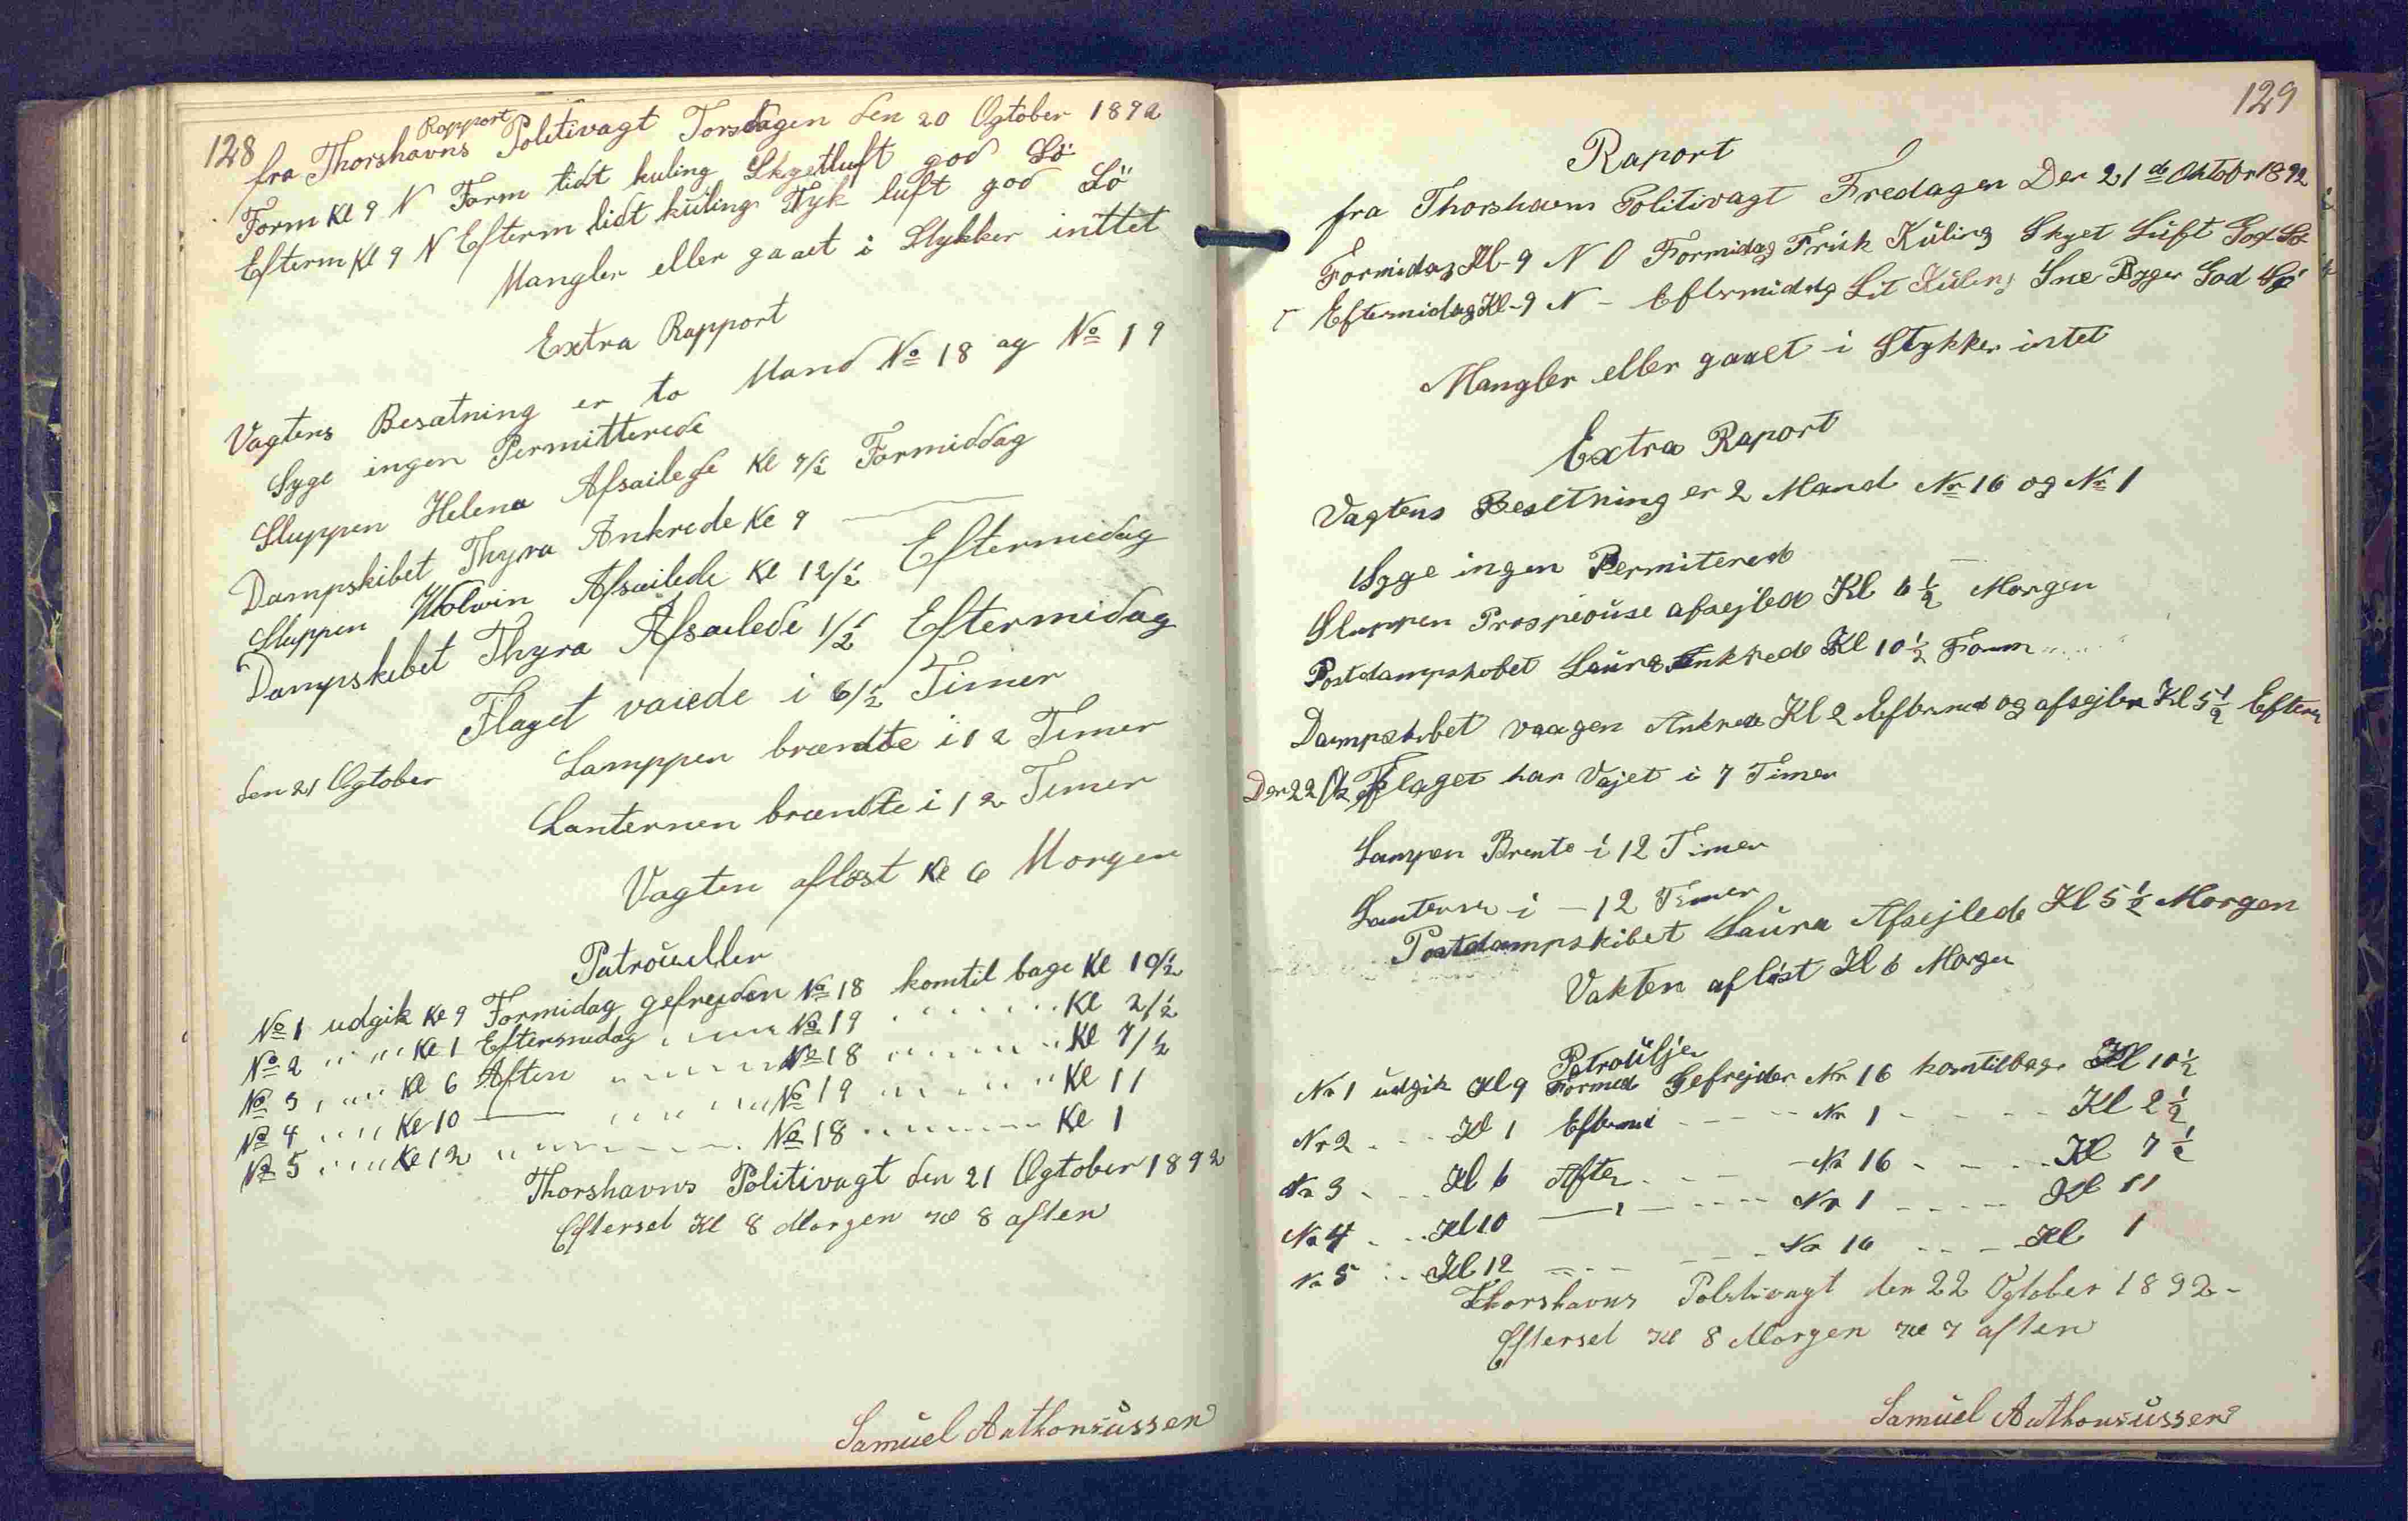 128
Rapport
fra Thorshavns Politivagt Torsdagen den 20 Ogtober 1892
Form Kl 9 N Form lidt kuling Skyetluft god Sö
Efterm Kl 9 N Efterm lidt kuling Tyk luft god Sö
Mangler eller gaaet i Stykker inttet
Extra Rapport
Vagtens Besatning er to Mand No 18 og No 19
Syge ingen Permitterede
Sluppen Helena Afsailede Kl 7/½ Formiddag
Dampskibet Thyra Ankrede Kl 9 ———
Sluppen Afsailede Kl 12/½ Eftermedag
Dampskibet Thyra Afsailede 1/½ Eftermidag
Flaget vaiede i 6/½ Timer
den 21 Ogtober
Lamppen brændte i 12 Timer
Lanternen brændte i 12 Timer
Vagten aflöst Kl 6 Morgen
Patrouller
No 1 udgik Kl 9 Formidag gefrejden No 18 komtil bage Kl 10½
No 2 " " " Kl 1 Eftermidag " " " No 19 " " " Kl 2/½
No 3 " " " Kl 6 Aften " " " No 18 " " " Kl 7/½
No 4 " " " Kl 10 —— " " " No 19 " " " Kl 11
No 5 " " " Kl 12 " " " No 18 " " " Kl 1
Thorshavns Politivagt den 21 Ogtober 1892
Efterset Kl 8 Morgen Kl 8 aften
Samuel Anthoniussen
129
Raport
fra Thorshavns Politivagt Fredagen Den 21de Oktobr 1892
Formidag Kl-9 N O Formidag Frisk Kuling Skyet Luft God Sö
Eftermidag Kl-9 N - Eftermidag Lit Kuling Sne Byger God Sö
Mangler eller gaaet i Stykker intet
Extra Raport
Vagtens Besetning er 2 Mand Nr 16 og Nr 1
Syge ingen Permiterede
Sluppen afsejlede Kl 6½ Morgen
Postdampskibet Laura Ankrede Kl 10½ Form
Dampskibet vaagen Ankrede Kl 2 Eftermed og afsejlede Kl 5½ Efterm
Den 22 Flaget har Vajet i 7 Timer
Lampen Brente i 12 Timer
Lanterne i - 12 Timer
Postdampskibet Laura Afsejlede Kl 5½ Morgen
Vakten aflöst Kl 6 Morgen
Patroulje
Nr 1 udgik Kl 9 Formed Gefrejder Nr 16 komtilbage Kl 10½
Nr 2 - - - Kl 1 Eftermid - - - Nr 1 - - - Kl 2½
Nr 3 - - - Kl 6 Aften - - - Nr 16 - - - Kl 7½
Nr 4 - - - Kl 10 —— - - - Nr 1 - - - Kl 11
Nr 5 - - - Kl 12 - - - Nr 16 - - - Kl 1
Thorshavns Politivagt den 22 Ogtober 1892-
Efterset Kl 8 Morgen Kl 7 aften
Samuel Anthoniussen